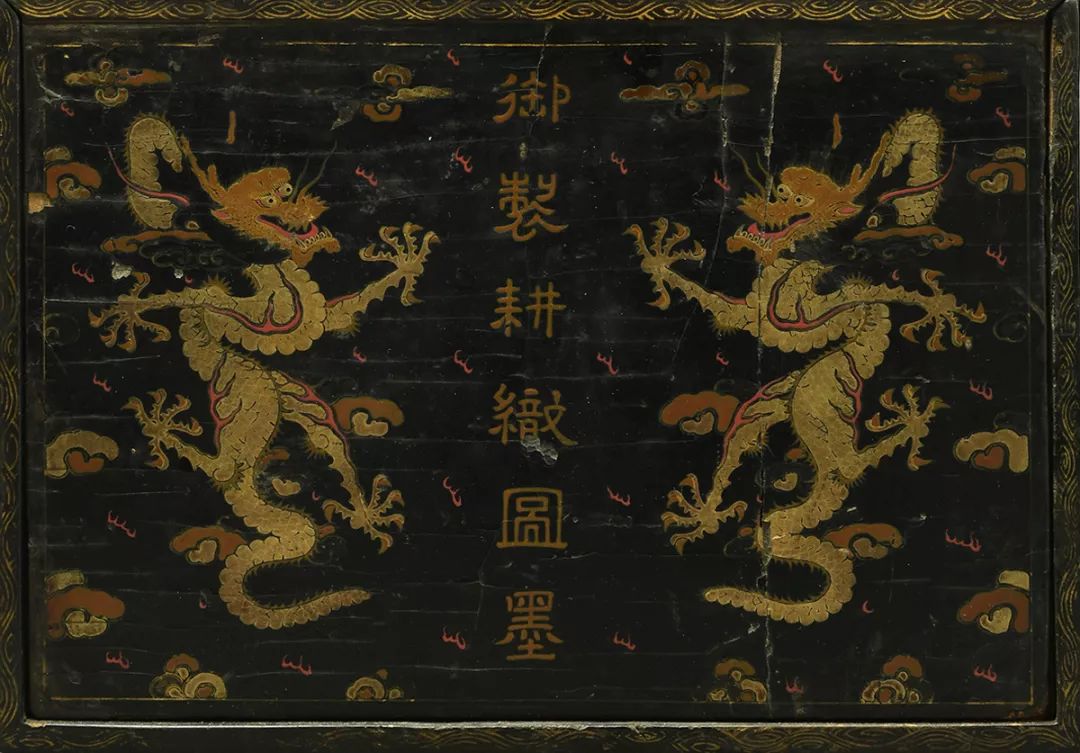 御製耕織圖墨